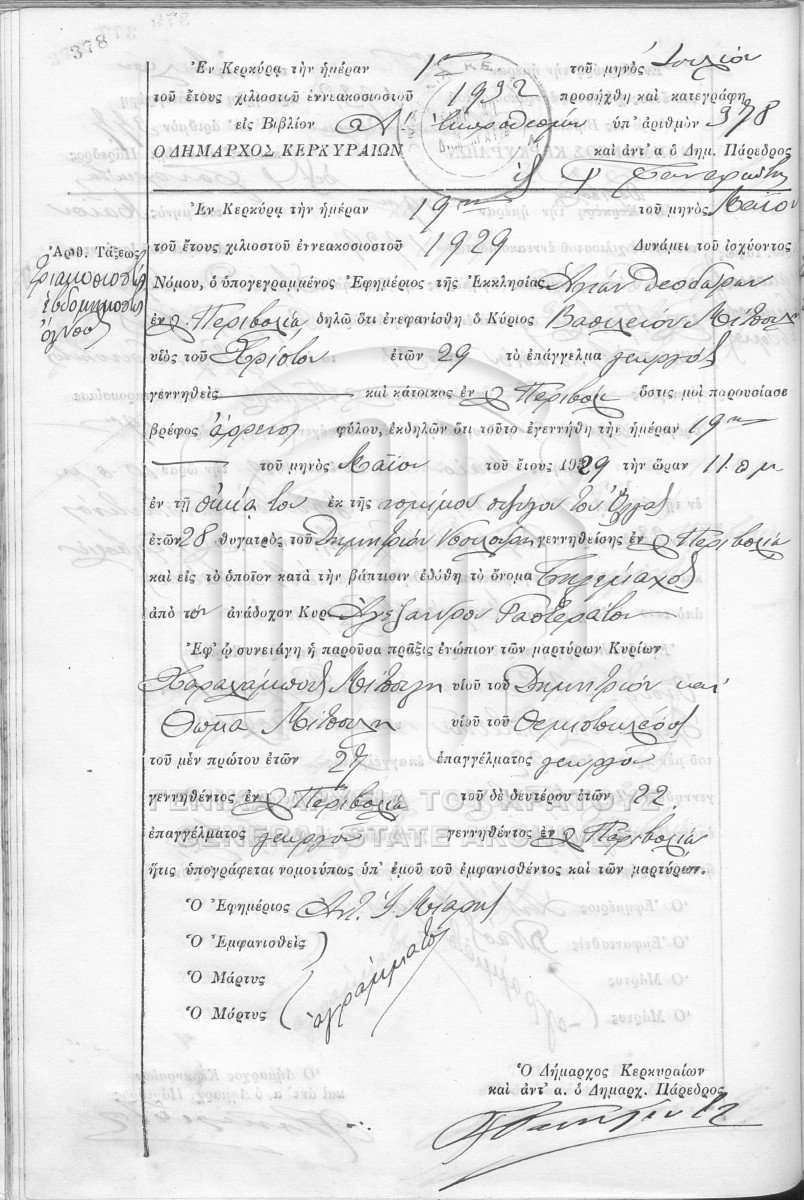 378
Ἐν Κερκύρᾳ τὴν ἡμέραν 1ην τοῦ μηνὸς Ἰουλίου
τοῦ ἔτους χιλιοστοῦ ἐννεακοσιοστοῦ 1932 προσήχθη καὶ κατεγράφη
εἰς Βιβλίον Α! Ἐκπροθέσμων ὑπ' ἀριθμὸν 378
Ο ΔΗΜΑΡΧΟΣ ΚΕΡΚΥΡΑΙΩΝ καὶ ἀντ' α ὁ Δημ. Πάρεδρος
Ἐν Κερκύρᾳ τὴν ἡμέραν 19ην τοῦ μηνὸς Μαΐου
Ἀριθ. Τάξεως τοῦ ἔτους χιλιοστοῦ ἐννεακοσιοστοῦ 1929 Δυνάμει τοῦ ἰσχύοντος
Νόμου, ὁ ὑπογεγραμμένος Ἐφημέριος τῆς Ἐκκλησίας Ἁγίων Θεοδώρων
ἐν Περιβολίῳ δηλῶ ὅτι ἐνεφανίσθη ὁ Κύριος Βασιλείου
υἱὸς τοῦ Χρίστου ἐτῶν 29 τὸ ἐπάγγελμα γεωργὸς
γεννηθεὶς καὶ κάτοικος ἐν Περιβολίῳ ὅστις μοὶ παρουσίασε
βρέφος ἄρρενος φύλου, ἐκδηλῶν ὅτι τοῦτο ἐγεννήθη τὴν ἡμέραν 19ην
τοῦ μηνὸς Μαΐου τοῦ ἔτους 1929 τὴν ὥραν 11 π μ
ἐν τῇ οἰκίᾳ του ἐκ τῆς νομίμου συζύγου του Ὄλγας
ἐτῶν 28 θυγατρὸς τοῦ Δημητρίου γεννηθείσης ἐν Περιβολίῳ
καὶ εἰς τὸ ὁποῖον κατὰ τὴν βάπτισιν ἐδόθη τὸ ὄνομα Τηλέμαχος
ἀπὸ τὸν ἀνάδοχον Κυρ Ἀλέξανδρον
Ἐφ' ᾧ συνετάγη ἡ παροῦσα πρᾶξις ἐνώπιον τῶν μαρτύρων Κυρίων
Χαραλάμπους υἱοῦ τοῦ Δημητρίου καὶ
Θωμᾶ υἱοῦ τοῦ Θεμιστοκλέους
τοῦ μὲν πρώτου ἐτῶν 27 ἐπαγγέλματος γεωργοῦ
γεννηθέντος ἐν Περιβολίῳ τοῦ δὲ δευτέρου ἐτῶν 22
ἐπαγγέλματος γεωργοῦ γεννηθέντος ἐν Περιβολίῳ
ἥτις ὑπογράφεται νομοτύπως ὑπ' ἐμοῦ τοῦ ἐμφανισθέντος καὶ τῶν μαρτύρων.
Ὁ Ἐφημέριος
Ὁ Ἐμφανισθεὶς
Ὁ Μάρτυς ἀγράμματοι
Ὁ Μάρτυς
Ὁ Δήμαρχος Κερκυραίων
καὶ ἀντ' α. ὁ Δημαρχ. Πάρεδρος
ΓΕΝΙΚΑ ΑΡΧΕΙΑ ΤΟΥ ΚΡΑΤΟΥΣ
GENERAL STATE ARCHIVES